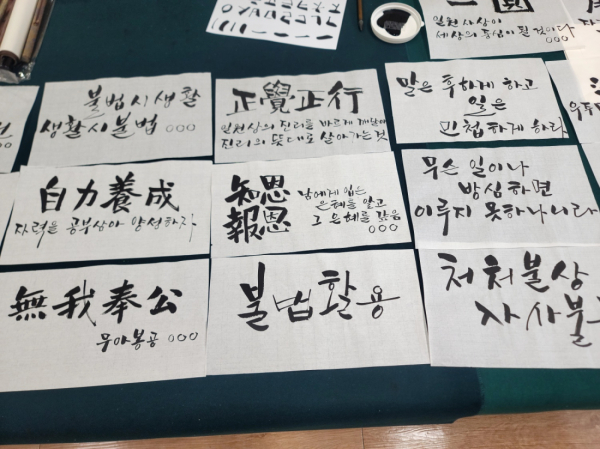 일원사상이
세상의 중심이 될 것이다
○○○
불법시생활
생활시불법 ○○○
正覺正行
일원상의 진리를 바르게 깨달아
진리의 뜻대로 살아가는 것
말은 후하게 하고
일은
민첩하게 하라
自力養成
자력을 공부삼아 양성하자
知恩
報恩
남에게 입은
은혜를 알고
그 은혜를 갚음
○○○
무슨 일이나
방심하면
이루지 못하나니라
無我奉公
무아봉공 ○○○
불법활용
처처불상
사사불